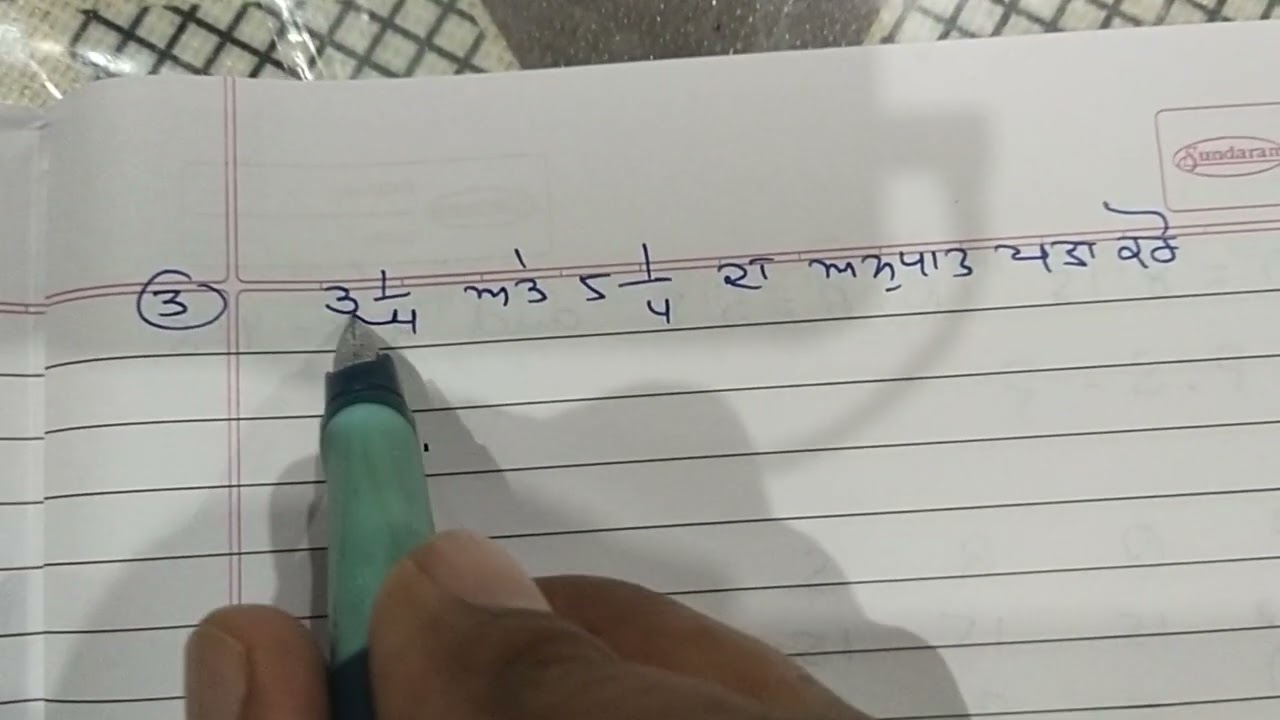 Sundaram
③ 3 1/4 ਅਤੇ 5 1/4 ਦਾ ਅਨੁਪਾਤ ਪਤਾ ਕਰੋ